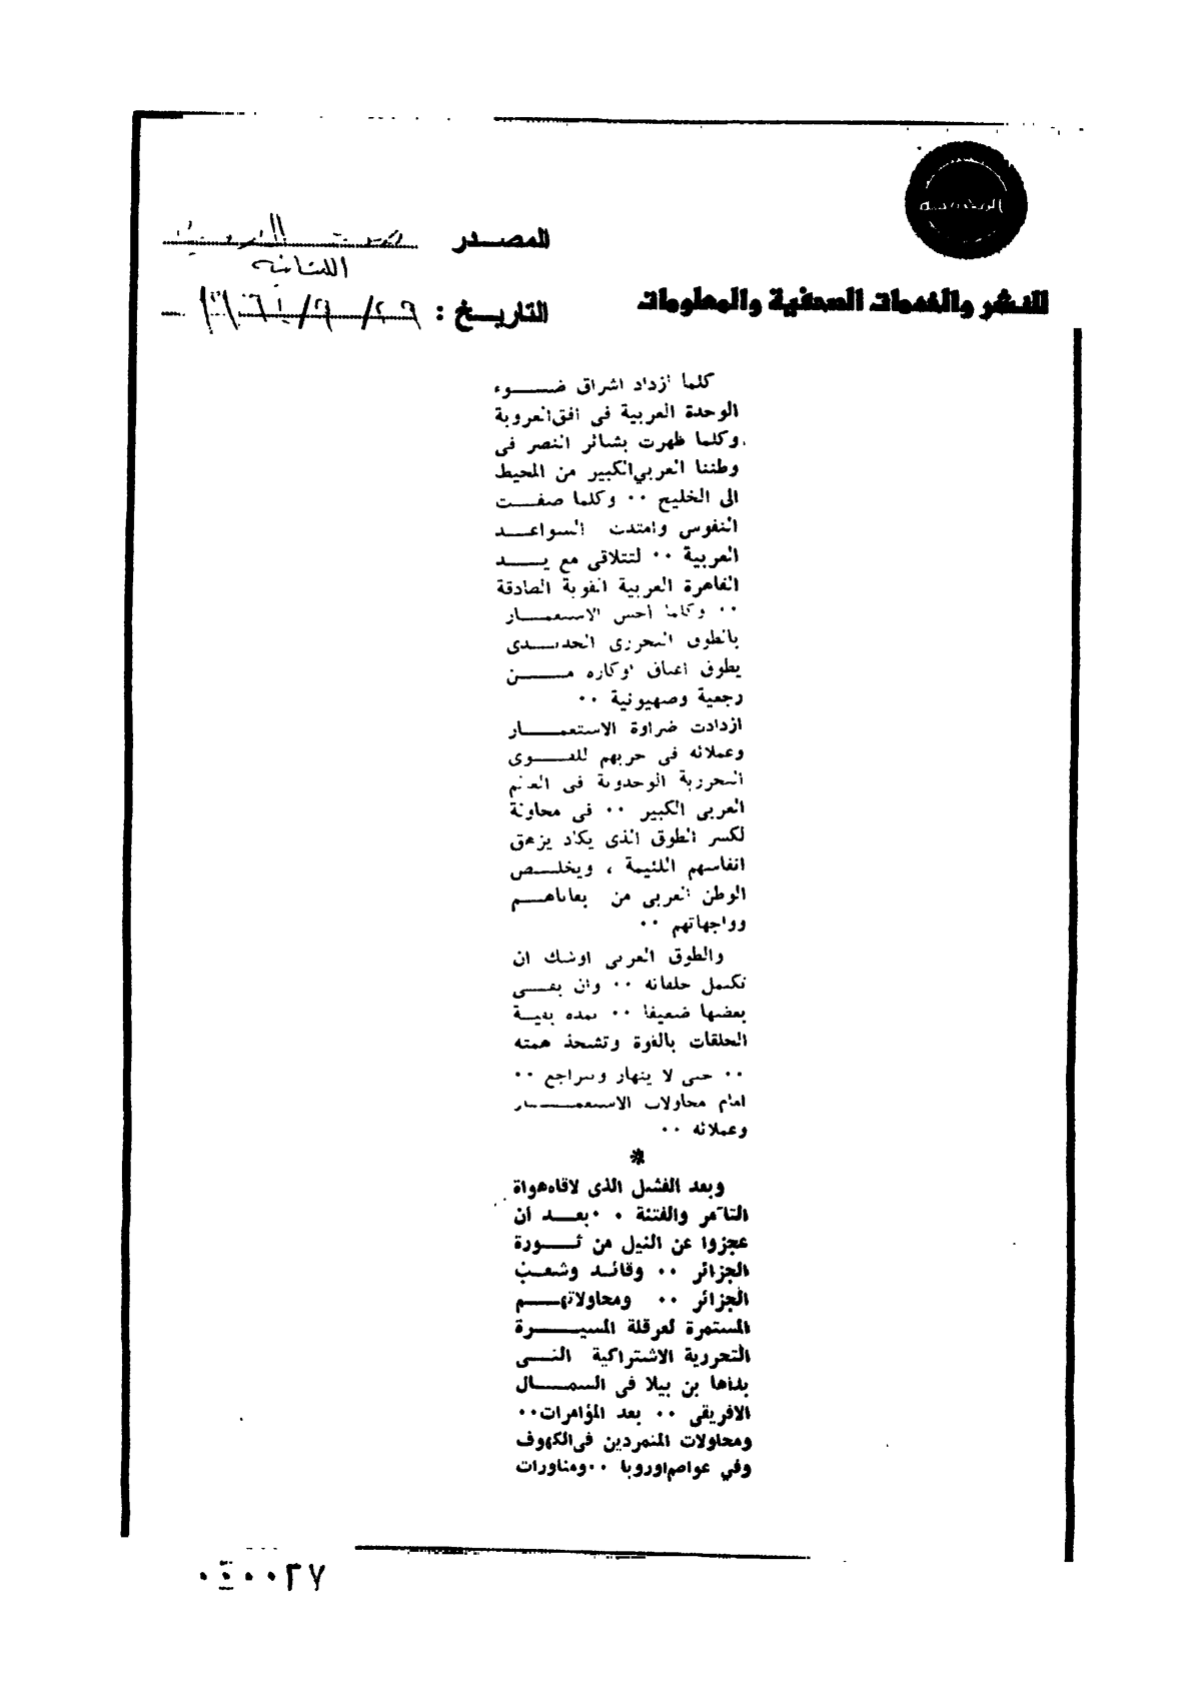 المصـــدر
اللبنانية
للنشر والخدمات الصحفية والمعلومات
التاريـــخ :
كلما ازداد اشراق ضـــوء
الوحدة العربية فى افق العروبة
وكلما ظهرت بشائر النصر فى
وطننا العربي الكبير من المحيط
الى الخليج ٠٠ وكلما صفـــت
النفوس وامتدت السواعـــد
العربية ٠٠ لتتلاقى مع يـــد
القاهرة العربية القوية الصادقة
٠٠ وكلما أحس الاستعمـــار
بالطوق التحررى الحديـــدى
يطوق أعناق أوكاره مـــن
رجعية وصهيونية ٠٠
ازدادت ضراوة الاستعمـــار
وعملائه فى حربهم للقـــوى
التحررية الوحدوية فى العالم
العربى الكبير ٠٠ فى محاولة
لكسر الطوق الذى يكاد يزهق
انفاسهم اللئيمة ، ويخلـــص
الوطن العربى من بقاياهـــم
وواجهاتهم ٠٠
والطوق العربى اوشك ان
تكتمل حلقاته ٠٠ وان بقـــى
بعضها ضعيفا ٠٠ تمده بقيـــة
الحلقات بالقوة وتشحذ همته
٠٠ حتى لا ينهار ويتراجع ٠٠
امام محاولات الاستعمـــار
وعملائه ٠٠
*
وبعد الفشل الذى لاقاه هواة
التآمر والفتنة ٠ ٠ بعـــد أن
عجزوا عن النيل من ثـــورة
الجزائر ٠٠ وقائد وشعب
الجزائر ٠٠ ومحاولاتهـــم
المستمرة لعرقلة المسيـــرة
التحررية الاشتراكية التـــى
بدأها بن بيلا فى الشمـــال
الافريقى ٠٠ بعد المؤامرات ٠٠
ومحاولات المتمردين فى الكهوف
وفي عواصم اوروبا ٠٠ ومناورات